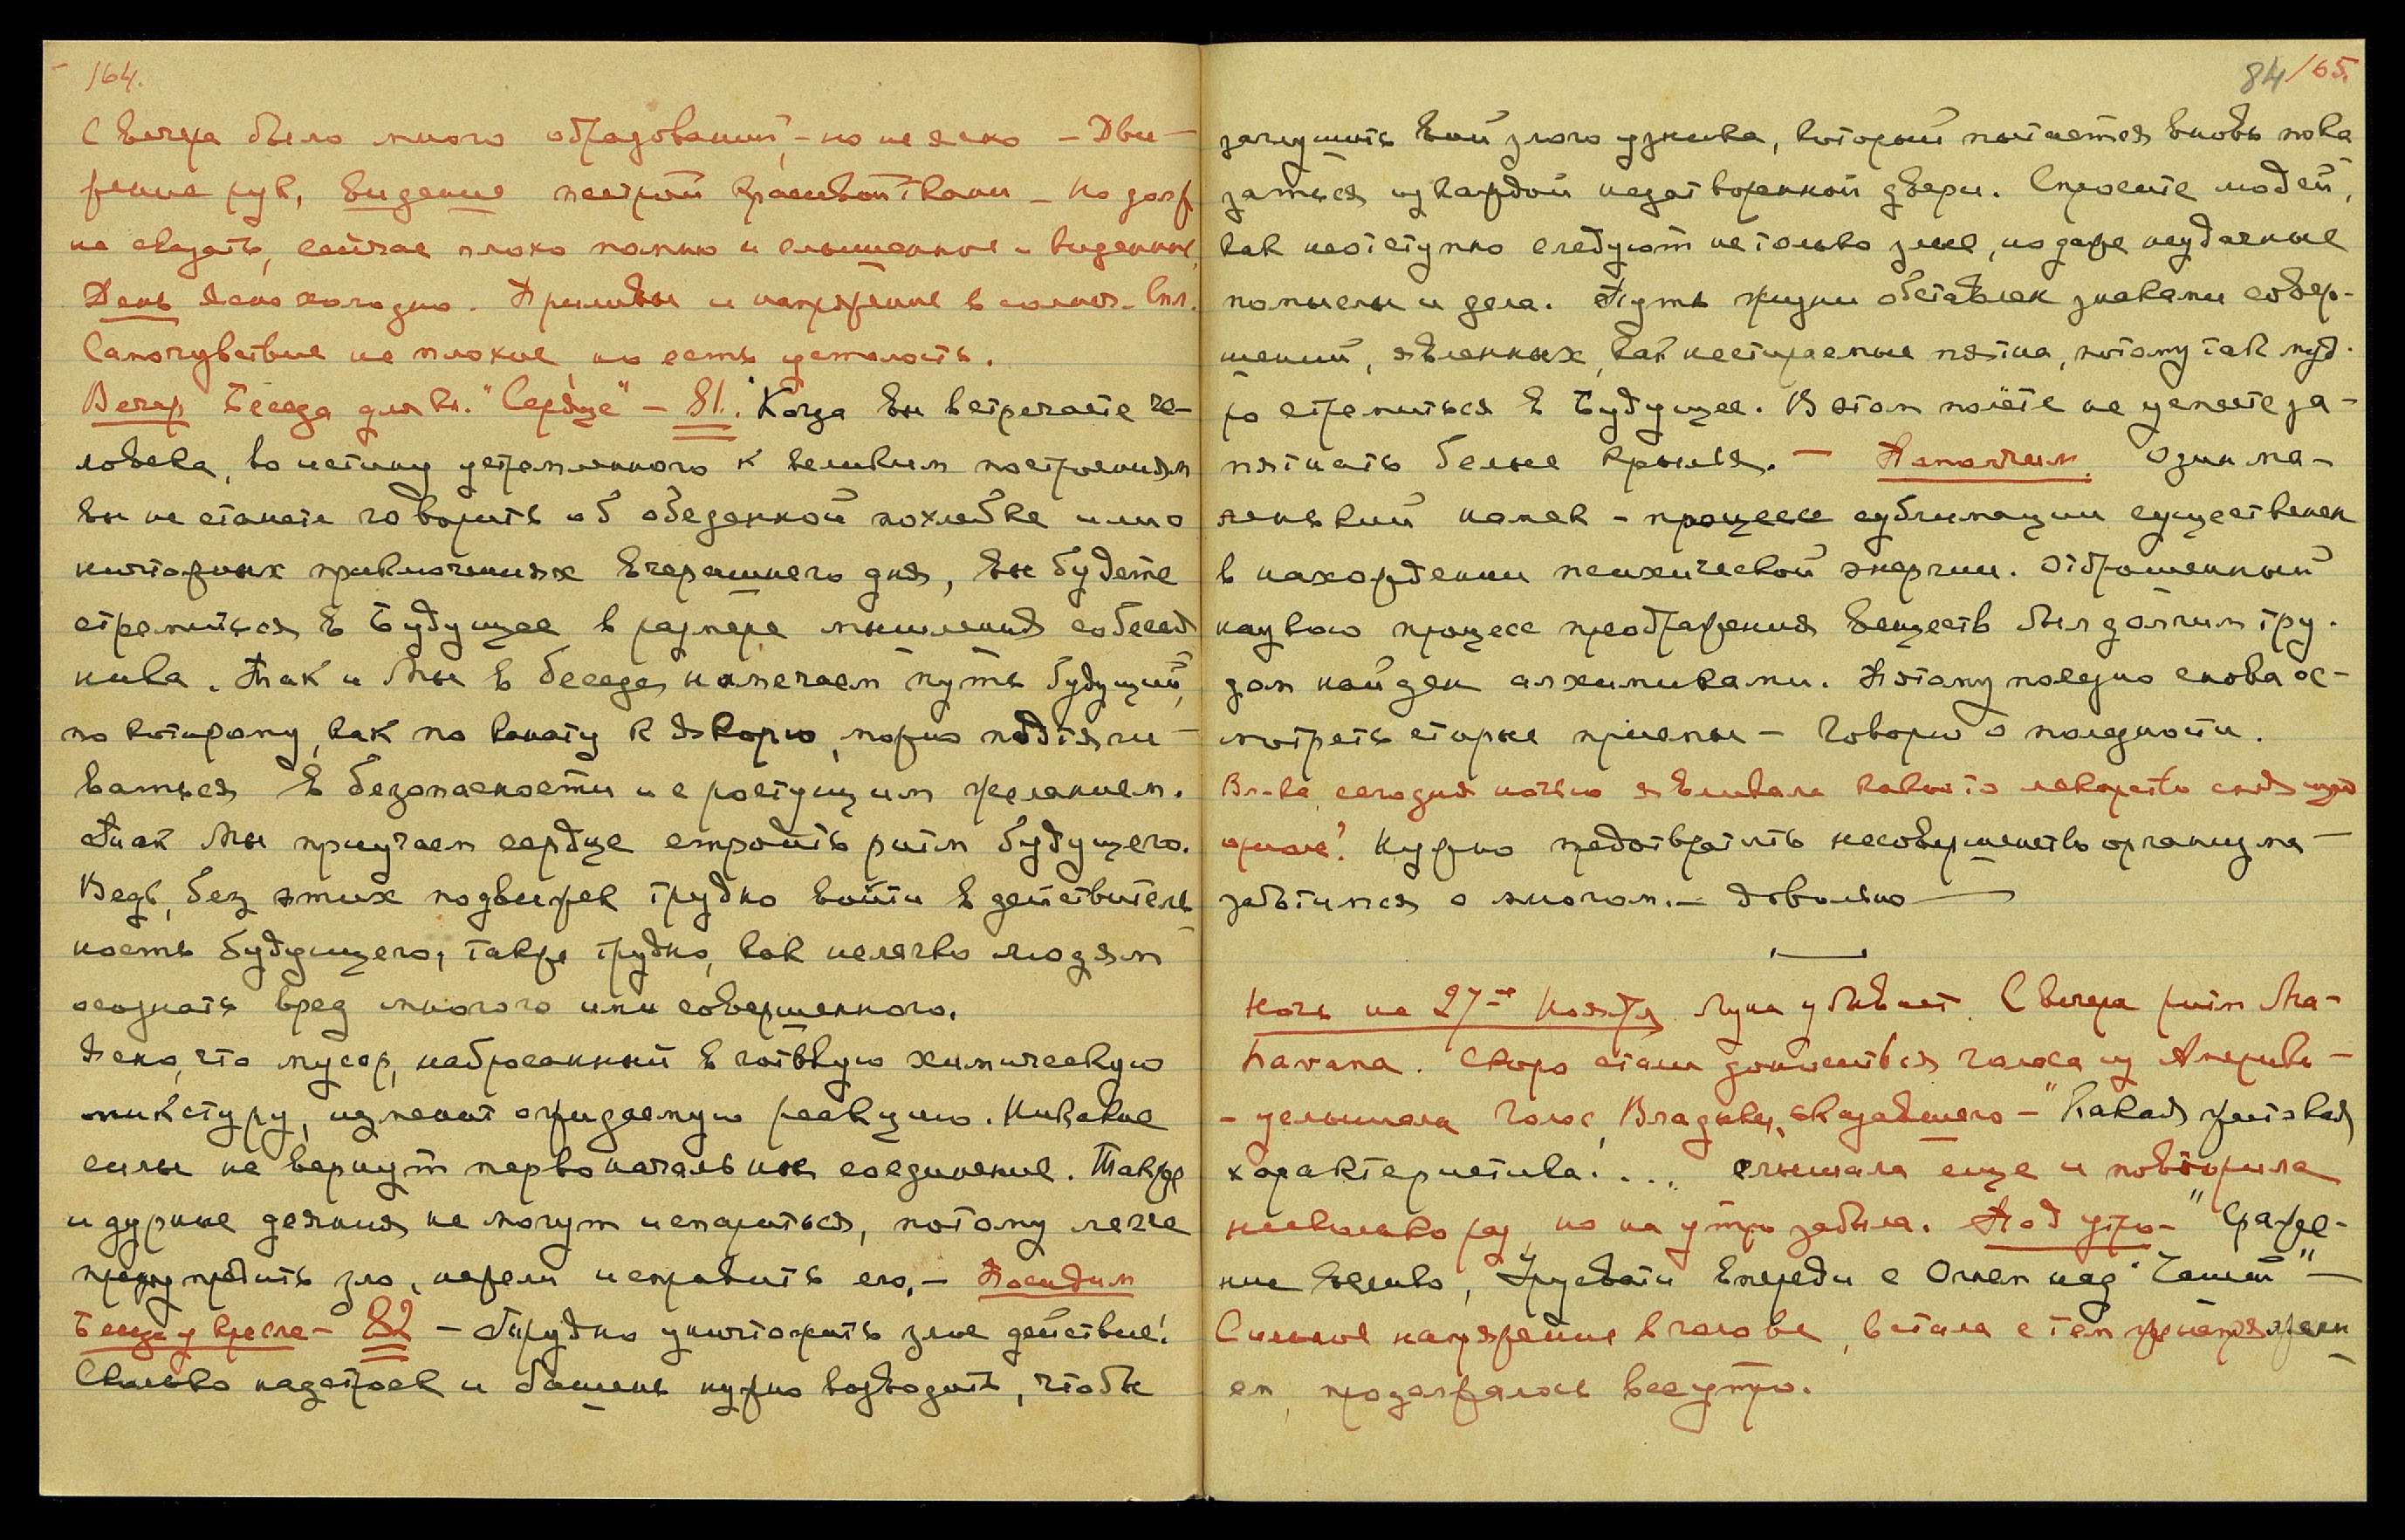 164.
С вечера было много образований, – но не ясно – Дви-
жение рук, видение пестрой красивой ткани – Но долж
на сказать, сейчас плохо помню и слышанное и виденное.
День ясно холодно. Приливы и напряжение в солнеч. спл.
Самочувствие не плохое, но есть усталость.
Вечер Беседа для кн. "Сердце" – 81. Когда вы встречаете че-
ловека, во истину устремленного к великим построениям
вы не станете говорить об обеденной похлебке или о
ничтожных приключениях вчерашнего дня, вы будете
стремиться в Будущее в размере мышления собесед
ника. Так и Мы в беседах намечаем путь будущий,
по которому, как по канату к якорю, можно подтяги-
ваться в безопасности и с ростущим желанием.
Так Мы приучаем сердце строить ритм будущего.
Ведь, без этих подвижек трудно войти в действитель
ность будущего, также трудно, как нелегко людям
осознать вред многого ими совершенного.
Ясно, что мусор, набросанный в готовую химическую
микстуру, изменит ожидаемую реакцию. Никакие
силы не вернут первоначальное соединение. Также
и дурные деяния не могут испариться, потому легче
предупредить зло, нежели исправить его. – Посидим
Беседа у кресла – 82 – Трудно уничтожить злое действие!
Сколько надстроек и башень нужно возводить, чтобы
84/65.
заглушить вой злого узника, который пытается вновь пока
заться из каждой незатворенной двери. Спросите людей,
как неотступно следуют не только злые, но даже неудачные
помыслы и дела. Путь жизни обставлен знаками совер-
шений, явленных, как нестираемые пятна, потому так муд-
ро стремиться в Будущее. В этом полёте не успеете за-
пятнать белые крылья. – Помолчим. Один ма-
ленький намек – процесс сублимации существенен
в нахождении психической энергии. Отброшенный
наукою процесс преображения веществ был долгим тру-
дом найден алхимиками. Потому полезно снова ос-
мотреть старые приемы – Говорю о полезности.
Вл-ка, сегодня ночью я вливала какое то лекарство
Нужно предотвратить несовершенство организма –
заботимся о многом. – Довольно –
Ночь на 27-ое Ноября Луна убывает. С вечера ритм Ма-
Скоро стали доноситься голоса из Америки –
– услышала Голос Владыки, сказавшего – "Какая жестокая
характеристика!... слышала еще и повторила
несколько раз, но на утро забыла. Под утро – "Сраже-
ние велико, Урусвати впереди с Огнем над Чашей" –
Сильное напряжение в голове, встала с тем же напряжени
ем, продолжалось все утро.